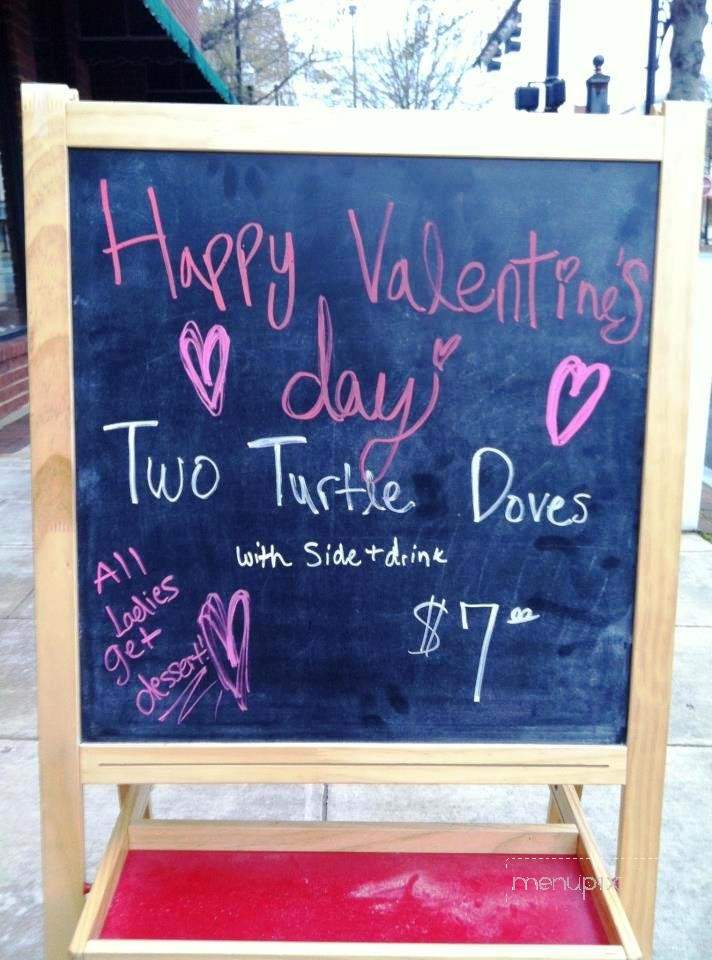 Happy Valentine's
day
Two Turtle Doves
with Side + drink
$7.00
All
Ladies
get
dessert!
menupix